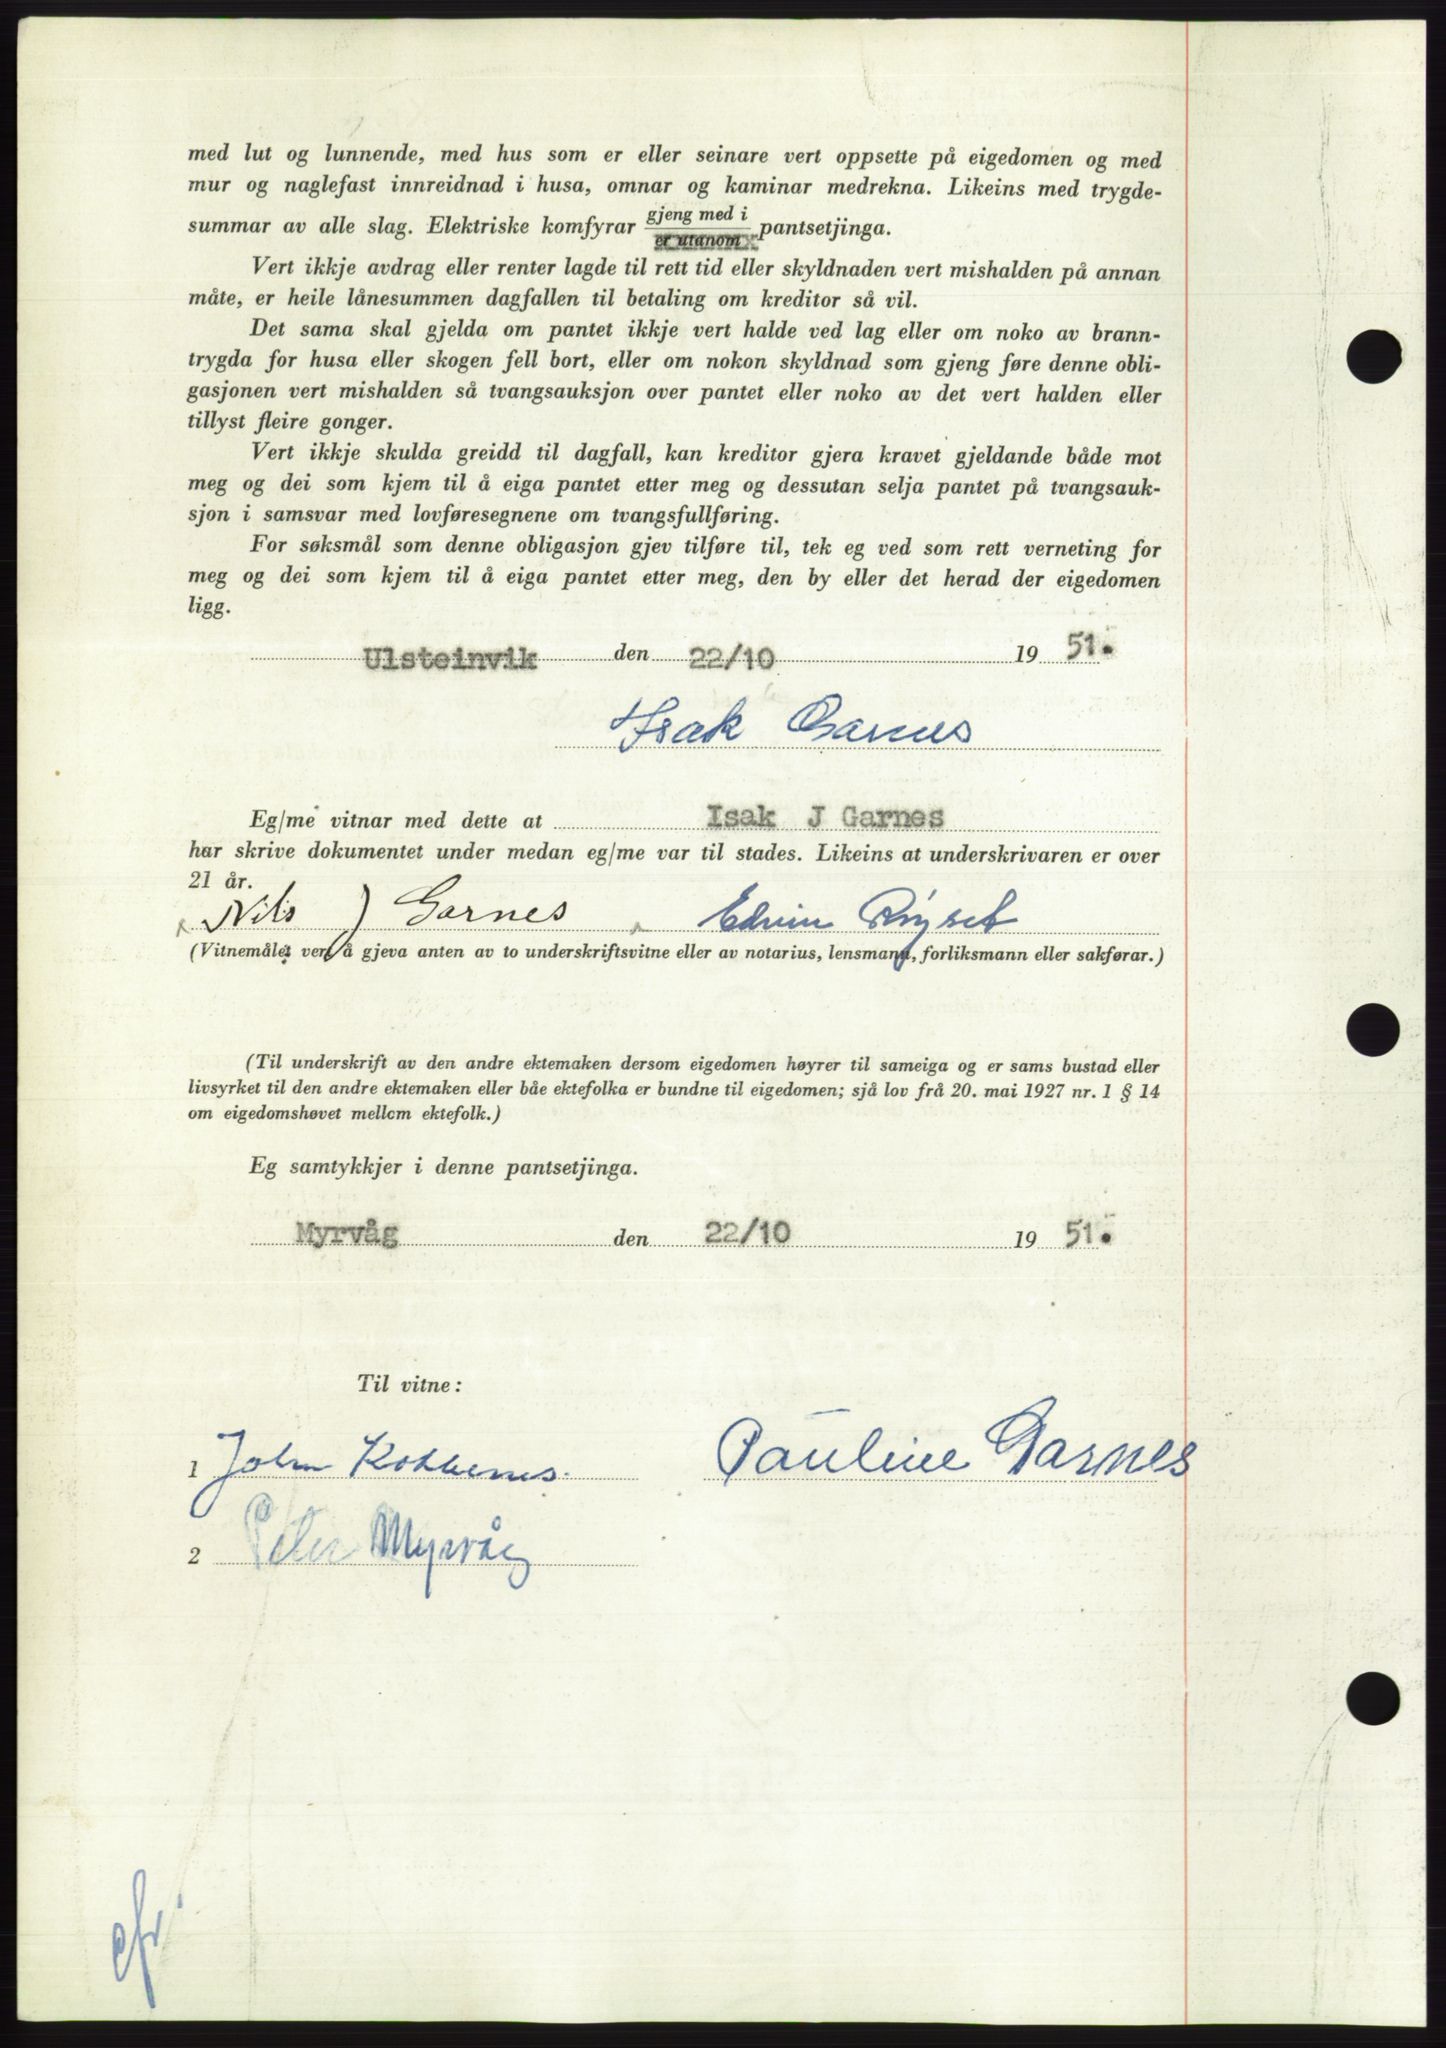 med lut og lunnende, med hus som er eller seinare vert oppsette på eigedomen og med
mur og naglefast innreidnad i husa, omnar og kaminar medrekna. Likeins med trygde-
summar av alle slag. Elektriske komfyrar gjeng med i pantsetjinga.
er utanom
Vert ikkje avdrag eller renter lagde til rett tid eller skyldnaden vert mishalden på annan
måte, er heile lånesummen dagfallen til betaling om kreditor så vil.
Det sama skal gjelda om pantet ikkje vert halde ved lag eller om noko av brann-
trygda for husa eller skogen fell bort, eller om nokon skyldnad som gjeng føre denne obli-
gasjonen vert mishalden så tvangsauksjon over pantet eller noko av det vert halden eller
tillyst fleire gonger.
Vert ikkje skulda greidd til dagfall, kan kreditor gjera kravet gjeldande både mot
meg og dei som kjem til å eiga pantet etter meg og dessutan selja pantet på tvangsauk-
sjon i samsvar med lovføresegnene om tvangsfullføring.
For søksmål som denne obligasjon gjev tilføre til, tek eg ved som rett verneting for
meg og dei som kjem til å eiga pantet etter meg, den by eller det herad der eigedomen
ligg.
Ulsteinvik den 22/10 19 51.
Isak Garnes
Eg/me vitnar med dette at Isak J Garnes
har skrive dokumentet under medan eg/me var til stades. Likeins at underskrivaren er over
21 år.
Nils J Garnes Edvin Røyset
(Vitnemålet vert å gjeva anten av to underskriftsvitne eller av notarius, lensmann, forliksmann eller sakførar.)
(Til underskrift av den andre ektemaken dersom eigedomen høyrer til sameiga og er sams bustad eller
livsyrket til den andre ektemaken eller båe ektefolka er bundne til eigedomen; sjå lov frå 20. mai 1927 nr. 1 § 14
om eigedomshøvet mellom ektefolk.)
Eg samtykkjer i denne pantsetjinga.
Myrvåg den 22/10 19 51.
Til vitne:
1 John Pauline Garnes
2 Peter Myrvåg
cfr